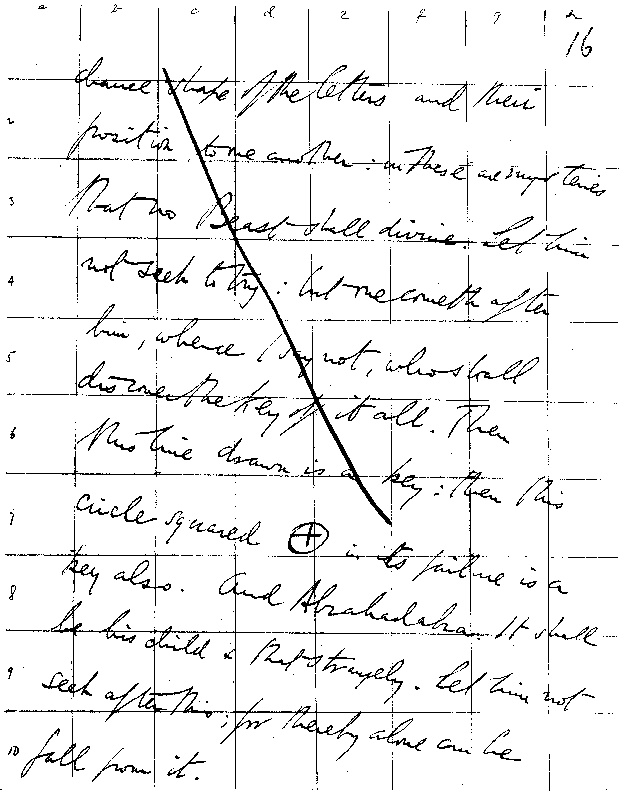 a b c d e f g h
16
chance shape of the letters and their
2
position to one another: in these are mysteries
3
that no Beast shall divine. Let him
4
not seek to try: but one cometh after
him, whence I say not, who shall
5
discover the key of it all. Then
6
this line drawn is a key: then this
7
circle squared in its failure is a
key also. And Abrahadabra. It shall
8
be his child & that strangely. Let him not
9
seek after this; for thereby alone can he
10 fall from it.